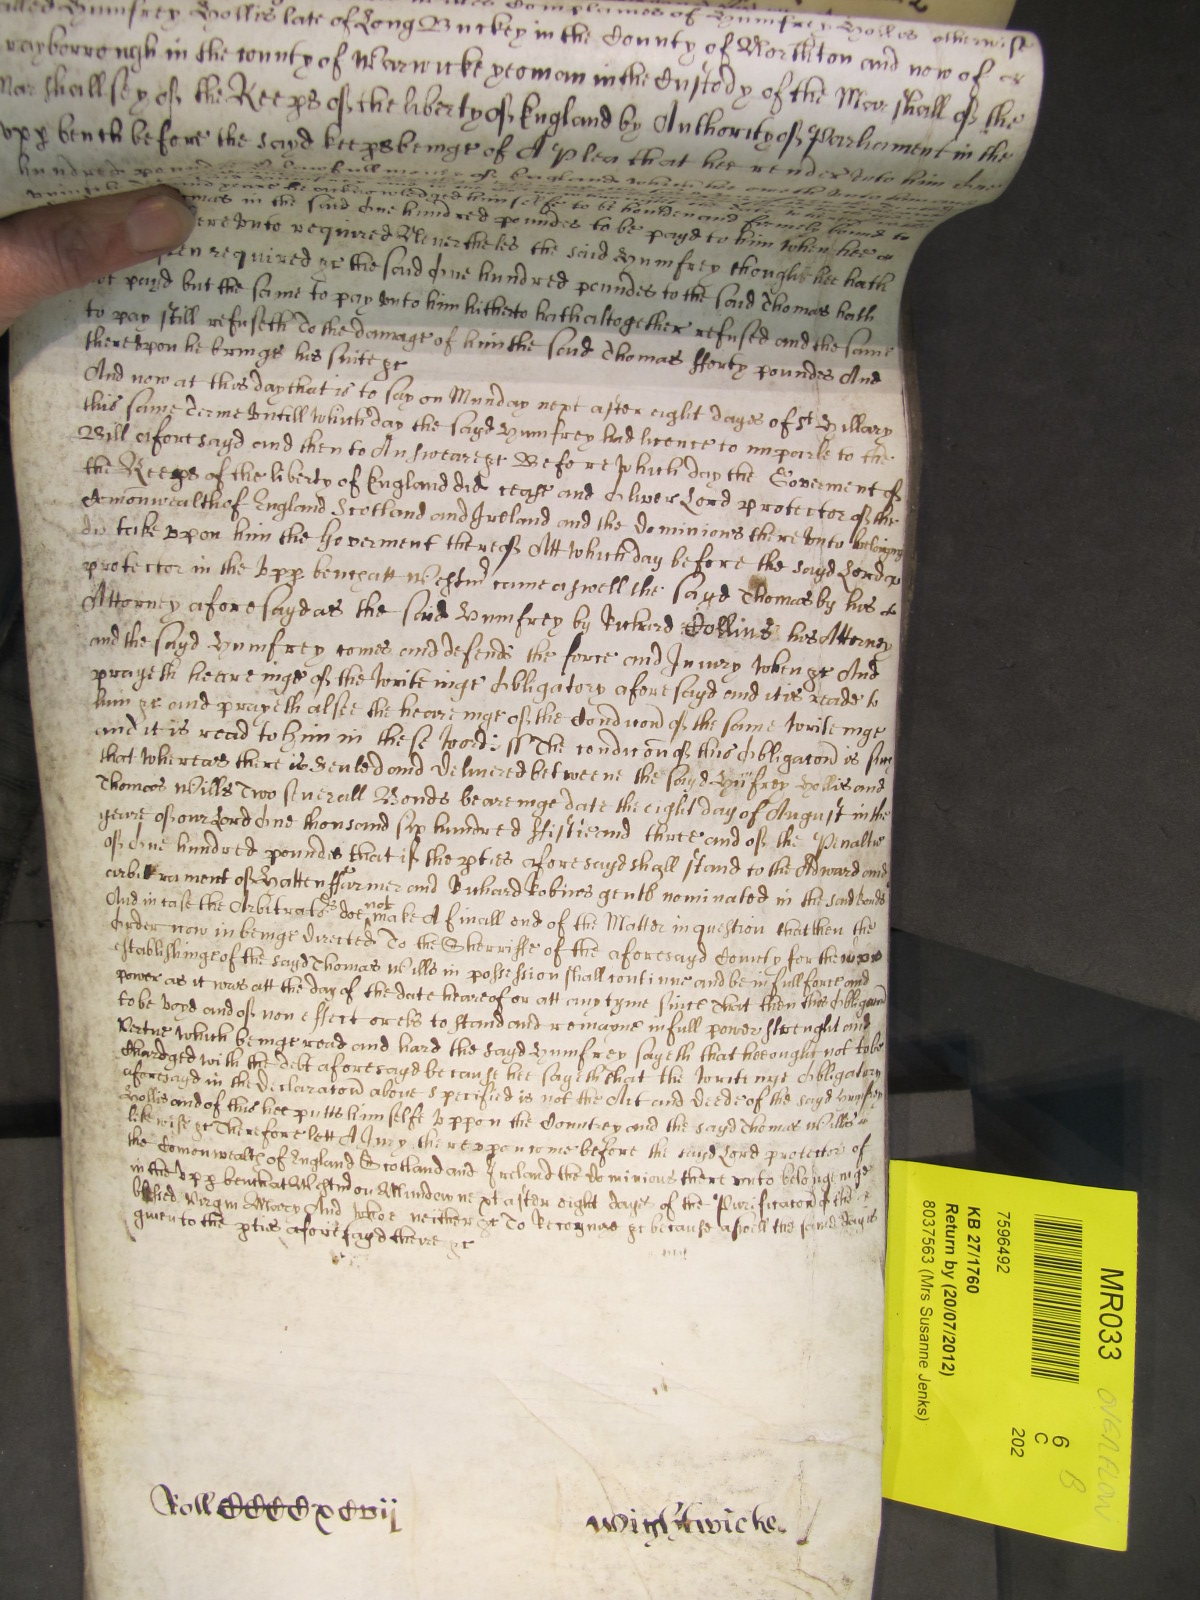 Humfrey Hollis late of Long Buckey in the County of Northton and now of
in the County of Warwicke yeoman in the Custody of the Marshall of the
Marshallsey of the Keeps of the liberty of England by Authority of Parliament in the
upp bench before the sayd keeps beinge of A Plea that hee render unto him One
hundred
himselfe to be bounden and firmely bound to
in the said One hundred poundes to be payd to him when hee
unto required Nevertheles the said Humfrey though hee hath
often required &c the said One hundred poundes to the said Thomas hath
not payd but the same to pay unto him hitherto hath altogether refused and the same
to pay still refuseth To the damage of him the said Thomas fforty poundes And
thereupon he brings his suite &c
And now at this day that is to say on Munday next after eight dayes of St Hillary
this same Terme Untill which day the sayd Humfrey had licence to imparle to the
Bill aforesayd and then to Answeare &c Before which day the Goverment of
the Keeps of the liberty of England did cease and Oliver Lord protector of the
Comonwealth of England Scotland and Ireland and the dominions there unto belonging
did take uppon him the Goverment thereof Att which day before the sayd Lord
protector in the Upp bench att Westmr came aswell the sayd Thomas by his
Attorney aforesayd as the said Humfrey by Richard Collins his Attorney
and the sayd Humfrey comes and defends the force and Injury when &c And
prayeth heareinge of the writeinge Obligatory aforesayd and it is reade to
him &c and prayeth alsoe the heareinge of the Condicon of the same writeinge
and it is read to him in these words ss The condicon of this Obligacon is such
that whereas there is Sealed and delivered betweene the sayd Hufrey Hollis and
Thomas Wills Two severall Bonds beareinge date the eight day of August in the
yeare of our Lord One thousand six hundred ffiftie and three and of the Penaltie
of One hundred poundes that if the pties aforesayd shall stand to the Adward and
arbitrament of Hatten ffarmer and Richard Robins gents nominated in the said bonds
And in case the Arbitrators doe not make A finall end of the Matter in question that then the
Order now in beinge directed To the Sherriffe of the aforesayd County for the
establishinge of the sayd Thomas Wills in possession shall continue and be in full force and
power as it was att the day of the date heareof or att any tyme since That then this Obligacon
to be voyd and of non effect or els to stand and remayne in full power strenght and
Vertue Which beinge read and hard the sayd Humfrey sayeth that hee ought not to be
Chardged with the debt aforesayd because hee sayeth that the writeinge Obligatory
aforesayd in the declaracon above specified is not the Act and deede of the sayd Humfrey
Hollis and of this hee putts himselfe uppon the Countrey and the sayd Thomas Wills
likewise &c Therefore lett A Jury thereuppon come before the sayd Lord protector of
the Comonwealth of England Scotland and Ireland the dominions there unto belongeinge
in the Upp bench at Westmr on Munday next after eight dayes of the Purificacon of the
blessed Virgin Mary And whoe neither &c To Recognize &c because aswell the same day is
given to the pties aforesayd there &c
Roll CCCCxcvij
Wightwicke
MR033
6
C
202
7596492
KB 27/1760
Return by (20/07/2012)
8037563 (Mrs Susanne Jenks)
OVERFLOW
B